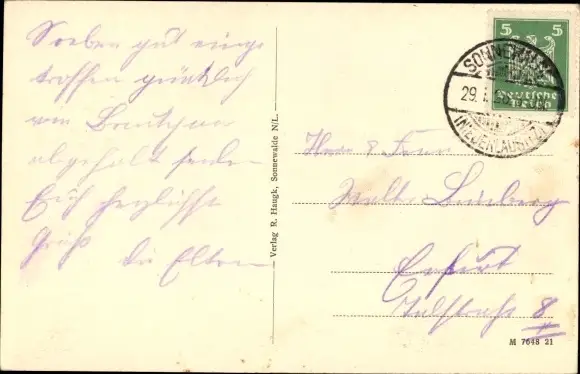 Soeben gut einge
troffen pünktlich
von Brautpaar
abgeholt senden
Euch herzlichste
Grüße die Eltern
Verlag R. Haugk, Sonnewalde N/L.
5 5
Deutsches Reich
SONNEWALDE
29.
(NIEDERLAUSITZ)
Herr & Frau
Walter
Erfurt
Talstraße 8
M 7648 21